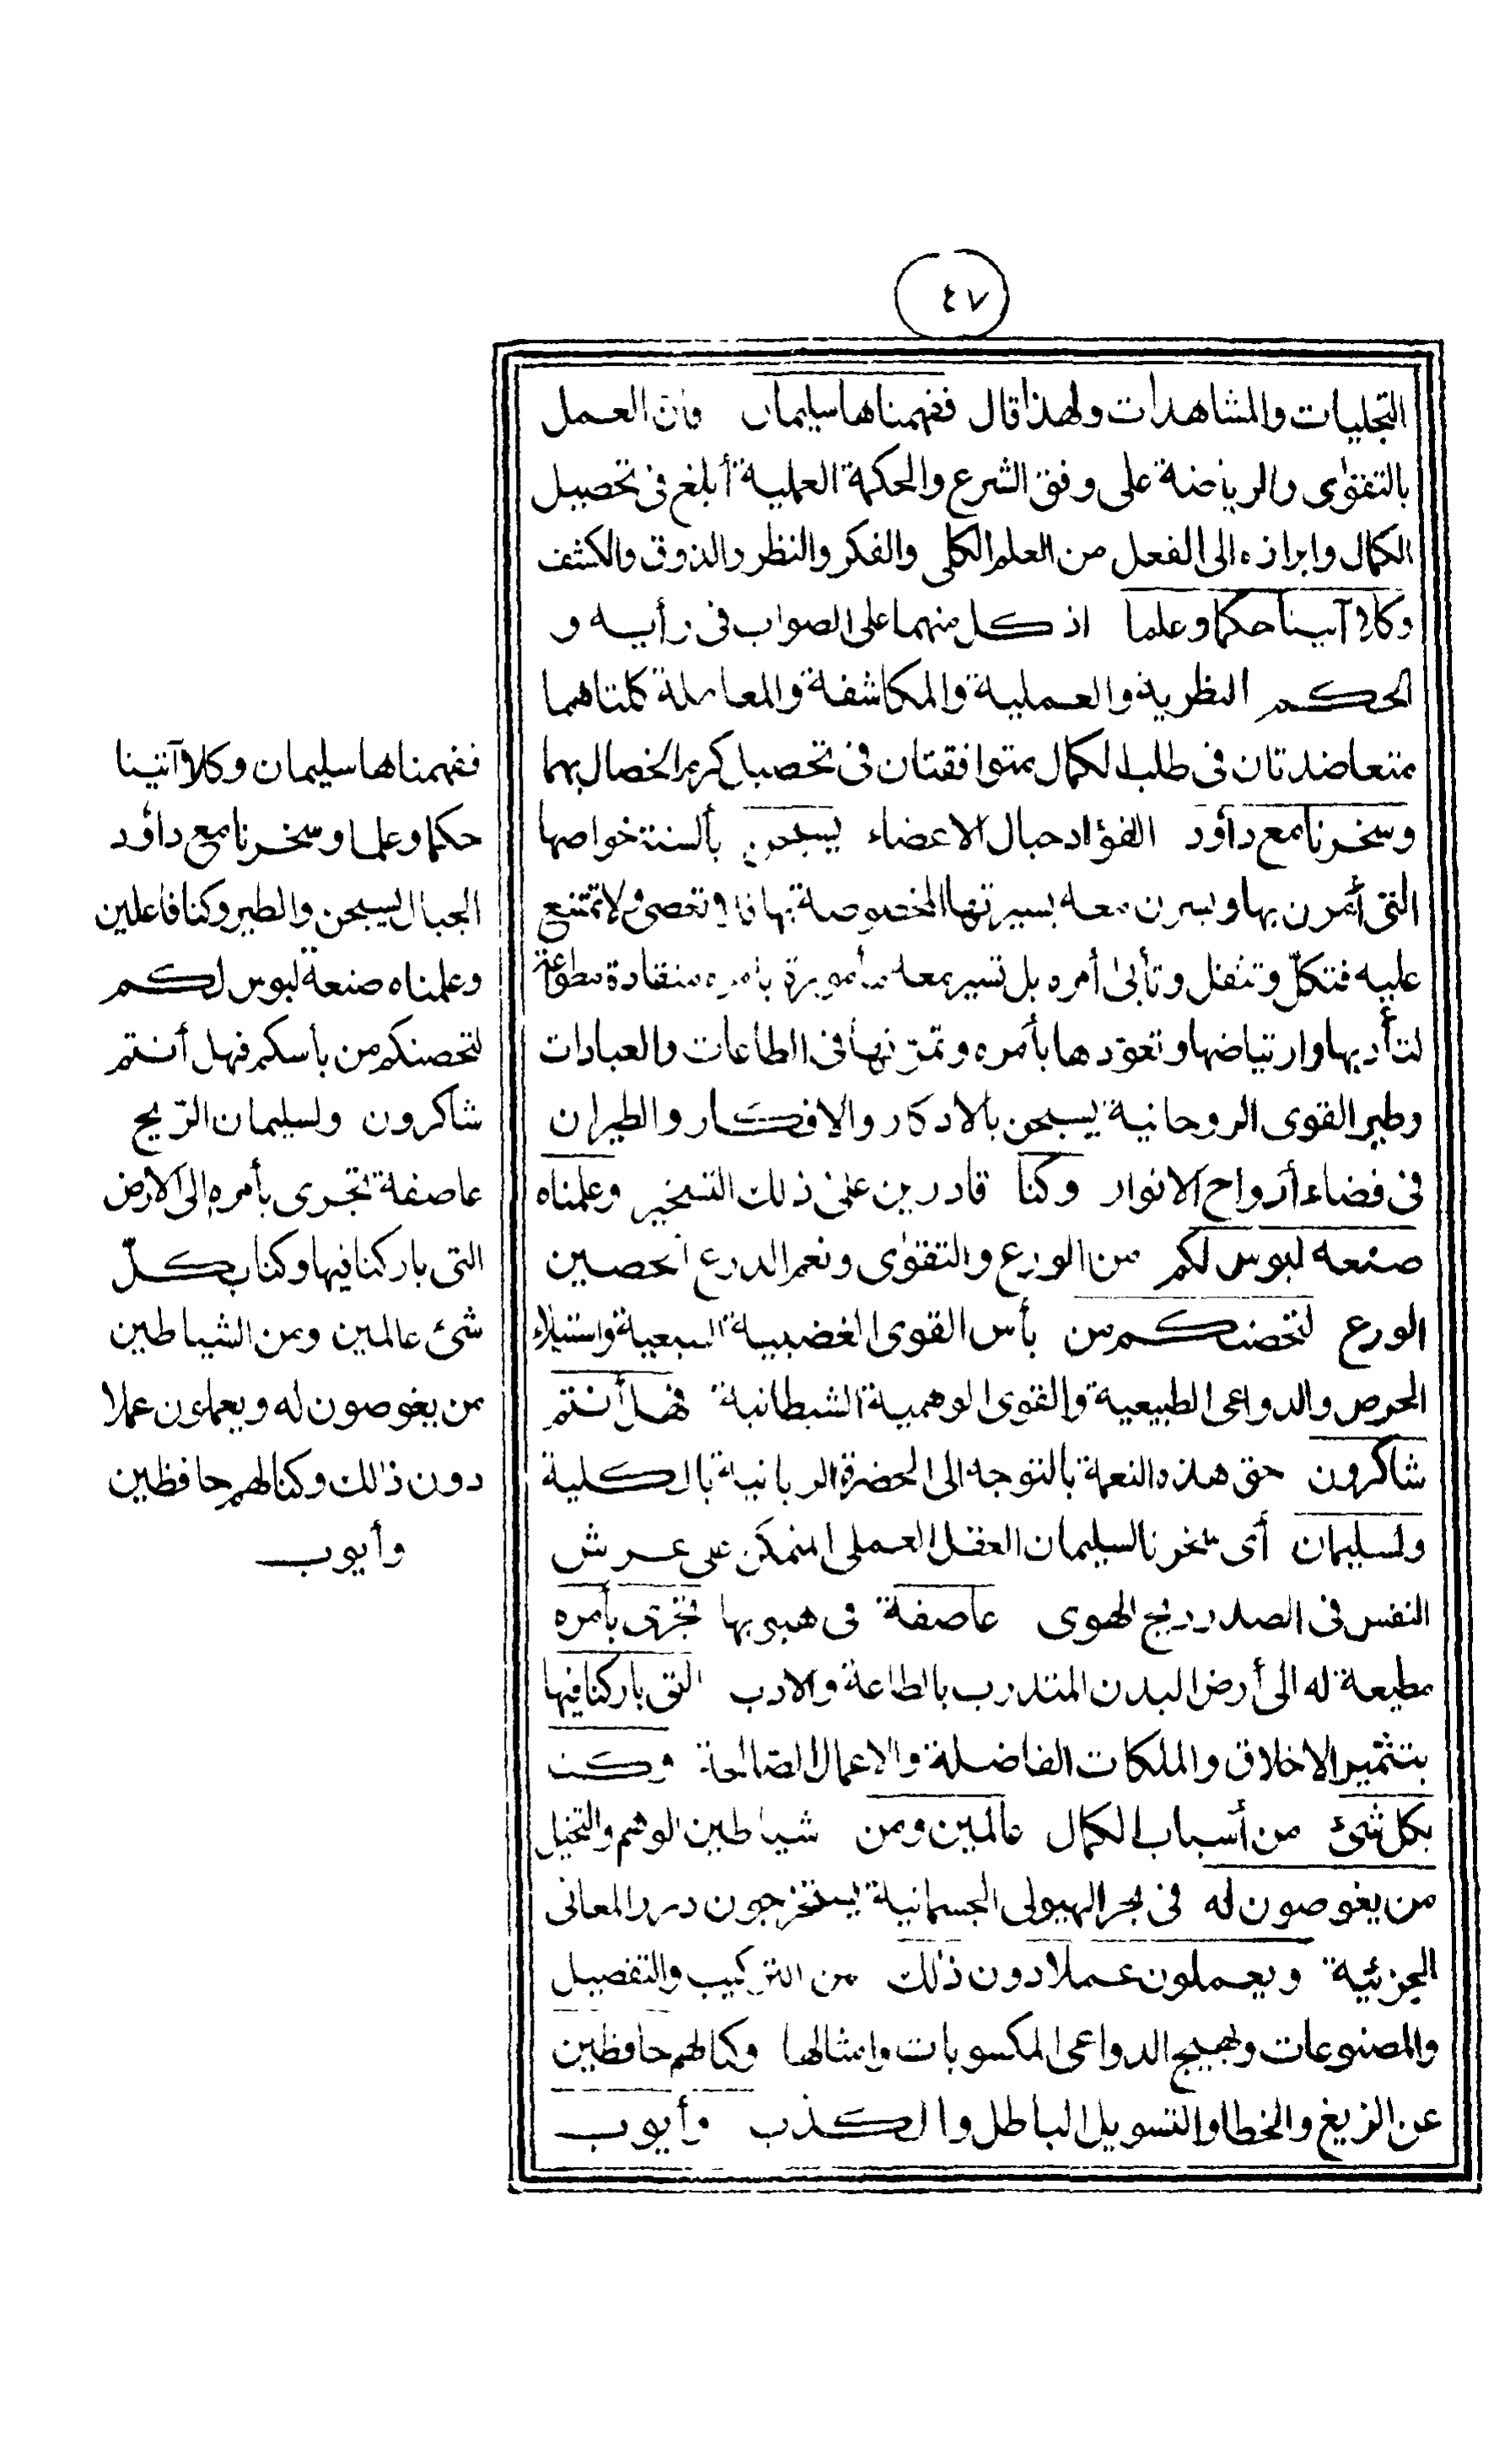 ٤٧
التجليات والمشاهدات ولهذا قال ففهمناها سليمان وان العمل
بالتقوى والرياضة على وفق الشرع والحكمة العملية أبلغ فى تحصيل
الكمال وابرازه الى الفعل من العلم الكلى والفكر والنظر والذوق والكشف
وكلا آتينا حكما وعلما اذ كل منهما على الصواب فى رأيه و
الحكم النظرية والعملية والمكاشفة والمعاملة كلتاهما
متعاضدتان فى طلب الكمال متوافقتان فى تحصيل كرم الخصال بهما
وسخرنا مع داؤد الفؤاد جبال الاعضاء يسبحن بألسنة خواصها
التى أمرن بها ويسرن معه بسيرتها المخصوصة بها فلا تعصى ولا تمتنع
عليه فتكلّ وتثقل وتأبى أمره بل تسير معه مأمورة بأمره منقادة مطواعة
لتأدبها وارتياضها وتعوّدها بأمره وتمرّنها فى الطاعات والعبادات
وطير القوى الروحانية يسبحن بالاذكار والافكار والطيران
فى فضاء أرواح الانوار وكنا قادرين على ذلك التسخير وعلمناه
صنعة لبوس لكم من الورع والتقوى ونعم الدرع الحصين
الورع لتحصنكم من بأس القوى الغضبية السبعية واستيلاء
الحرص والدواعى الطبيعية والقوى الوهمية الشيطانية فهل أنتم
شاكرون حق هذه النعمة بالتوجه الى الحضرة الربانية بالكلية
ولسليمان أى سخرنا لسليمان العقل العملى المتمكن على عرش
النفس فى الصدر ريح الهوى عاصفة فى هبوبها تجرى بأمره
مطيعة له الى أرض البدن المتدرب بالطاعة والادب التى باركنا فيها
بتثمير الاخلاق والملكات الفاضلة والاعمال الصالحة وكنا
بكل شئ من أسباب الكمال عالمين ومن شياطين الوهم والتخيل
من يغوصون له فى بحر الهيولى الجسمانية يستخرجون درر المعانى
الجزئية ويعملون عملا دون ذلك من التركيب والتفصيل
والمصنوعات وتهييج الدواعى المكسوبات وامثالها وكنا لهم حافظين
عن الزيغ والخطا والتسويل الباطل والكذب وأيوب
ففهمناها سليمان وكلا آتينا
حكما وعلما وسخرنا مع داؤد
الجبال يسبحن والطير وكنا فاعلين
وعلمناه صنعة لبوس لكم
لتحصنكم من بأسكم فهل أنتم
شاكرون ولسليمان الريح
عاصفة تجرى بأمره الى الارض
التى باركنا فيها وكنا بكلّ
شئ عالمين ومن الشياطين
من يغوصون له ويعملون عملا
دون ذلك وكنا لهم حافظين
وأيوب